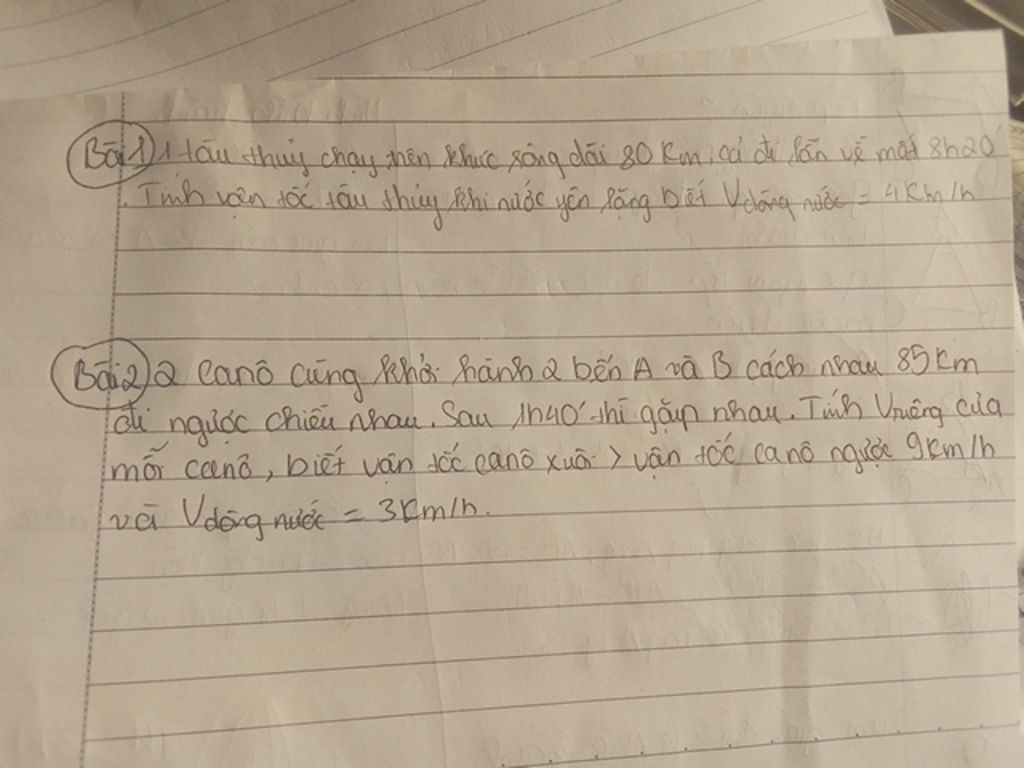 Bài 1) 1 tàu thủy chạy trên khúc sông dài 80 Km, cả đi lẫn về mất 8h20'
. Tính vận tốc tàu thủy khi nước yên lặng biết V dòng nước = 4Km/h
Bài 2) 2 canô cùng khởi hành 2 bến A và B cách nhau 85Km
đi ngược chiều nhau. Sau 1h40' thì gặp nhau. Tính Vriêng của
mỗi canô, biết vận tốc canô xuôi > vận tốc canô ngược 9Km/h
và V dòng nước = 3Km/h.